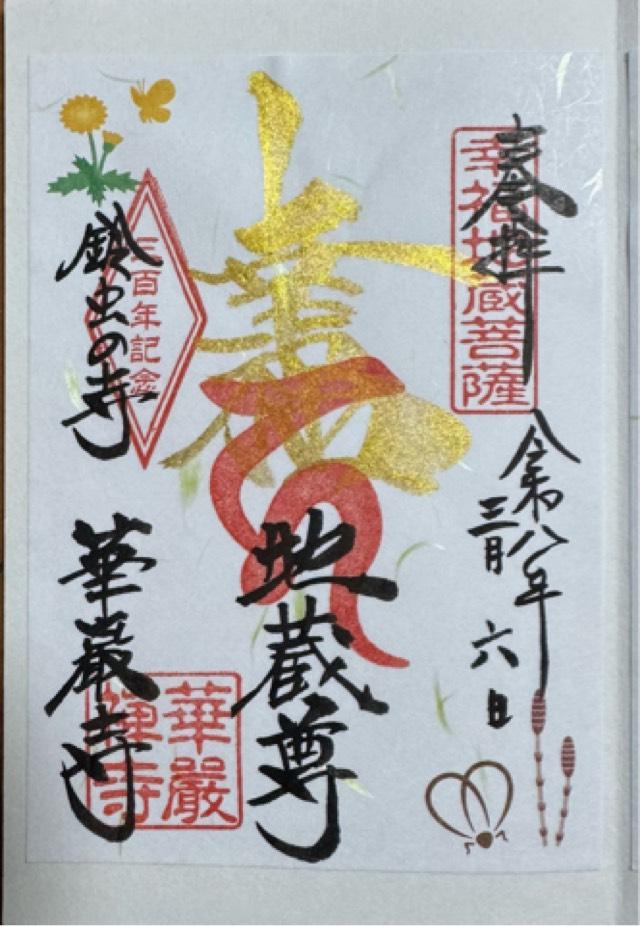 奉拝
幸福地蔵菩薩
令和八年
三月六日
壽
地蔵尊
三百年記念
鈴虫の寺
華厳寺
華嚴
禅寺